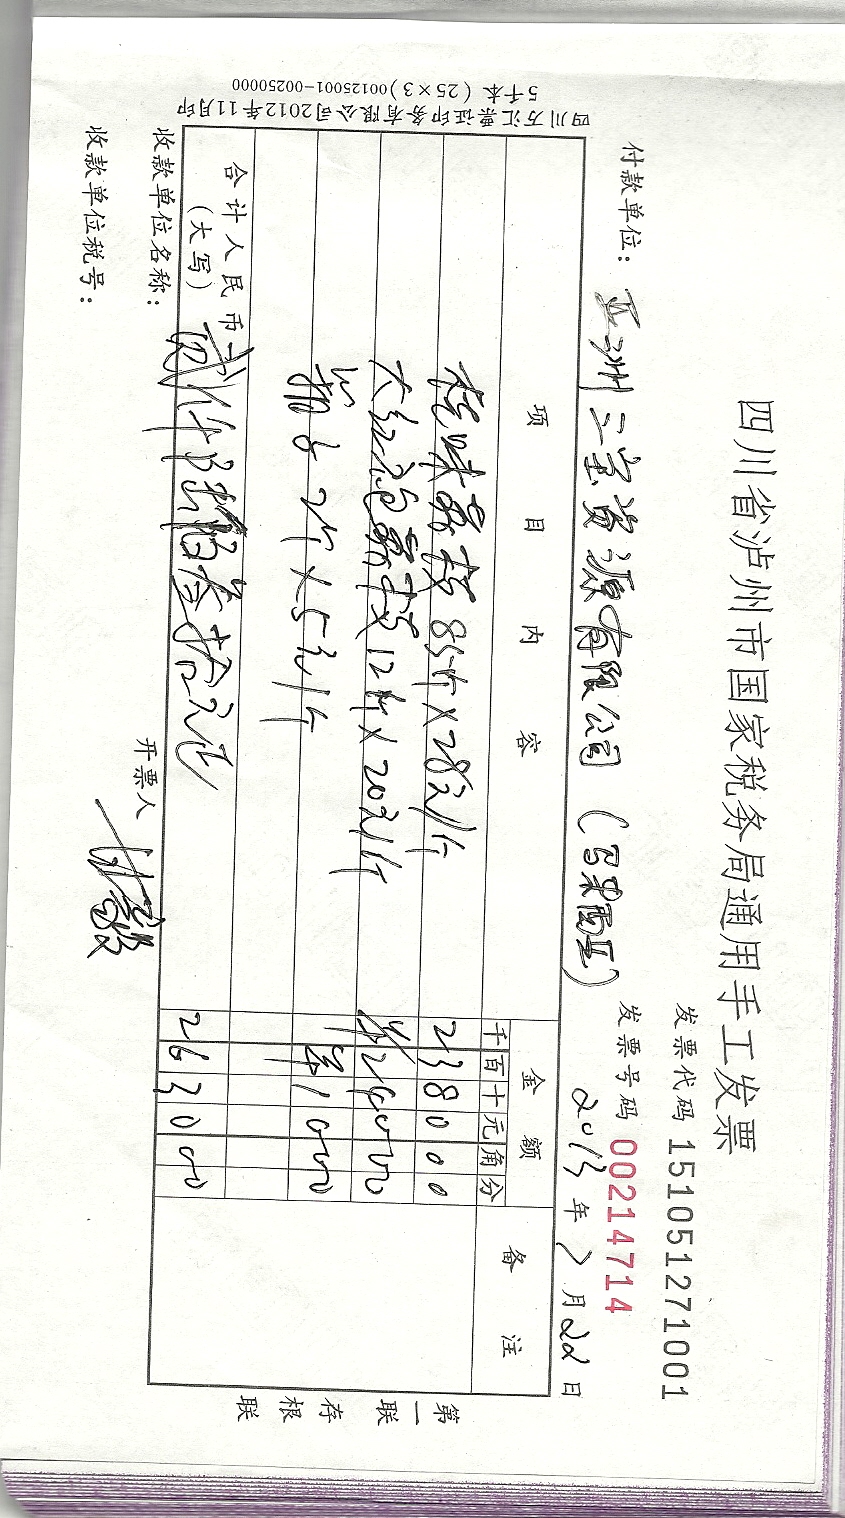 四川省泸州市国家税务局通用手工发票
发票代码 151051271001
发票号码 00214714
付款单位： 亚洲三宝资源有限公司（马来西亚）
2013年7月22日
项目内容 金额 备注
千百十元角分
桂味荔枝 85斤×28元/斤 2 3 8 0 0 0
大红袍荔枝12斤×20元/斤 ¥ 2 4 0 0 0
2斤×5元/斤 ¥ 1 0 0 0
合计人民币（大写） 贰仟陆佰叁拾元 2 6 3 0 0 0
收款单位名称： 开票人
收款单位税号：
第一联 存根联
四川万汇票证印务有限公司2012年11月印
5千本（25×3）00125001-00250000